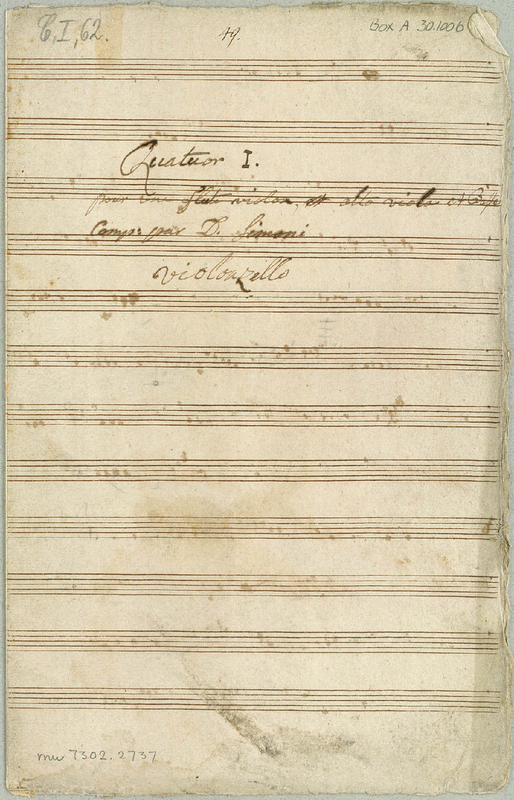 C,I,62.
49.
Box A 30.1006
Quatuor I.
pour une flute violon, et alto viola et
Comp: par D. Simoni
violonzello
mu 7302.2737